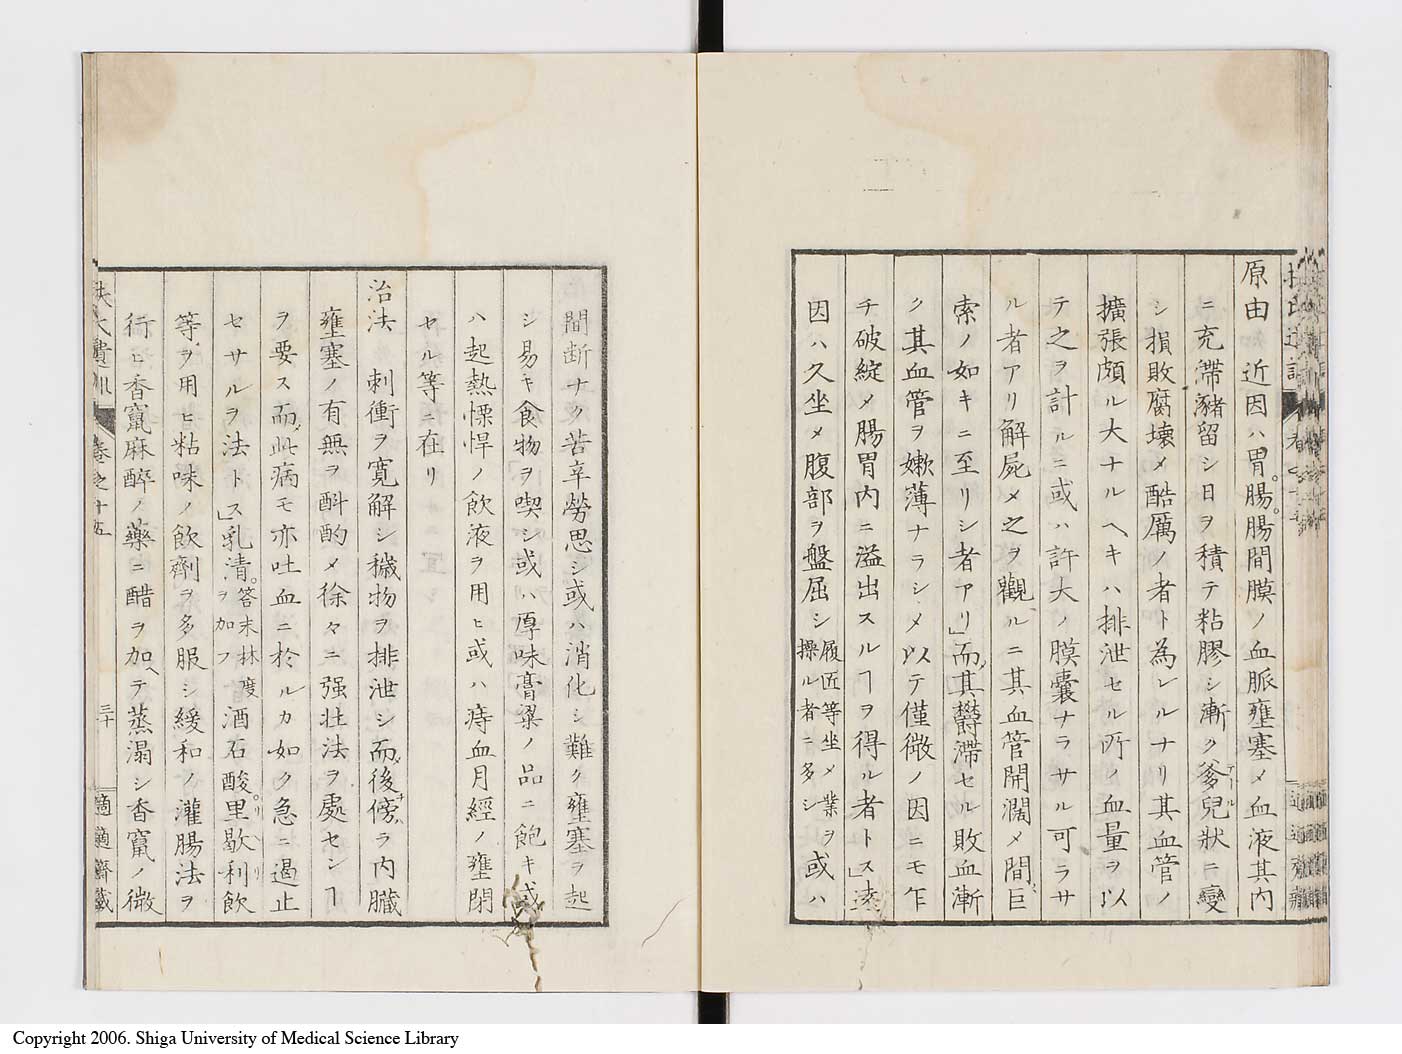 原由 近因ハ胃。腸。腸間膜ノ血脈壅塞メ血液其内
ニ充滯豬留シ日ヲ積テ粘膠シ漸ク爹兒狀ニ變
シ損敗腐壞メ酷厲ノ者ト為レルナリ其血管ノ
擴張頗ル大ナルヘキハ排泄セル所ノ血量ヲ以
テ之ヲ計ルニ或ハ許大ノ膜囊ナラサル可ラサ
ル者アリ解屍メ之ヲ觀ルニ其血管開濶メ間巨
索ノ如キニ至リシ者アリ」而其欝滯セル敗血漸
ク其血管ヲ嫩薄ナラシメ以テ僅微ノ因ニモ乍
チ破綻メ腸胃内ニ溢出スルヿヲ得ル者トス」遠
因ハ久坐メ腹部ヲ盤屈シ履匠等坐メ業ヲ操ル者ニ多シ或ハ
間断ナク苦辛勞思シ或ハ消化シ難ク壅塞ヲ起
シ易キ食物ヲ喫シ或ハ厚味膏粱ノ品ニ飽キ或
ハ起熱慓悍ノ飲液ヲ用ヒ或ハ痔血月經ノ壅閉
セル等ニ在リ
治法 刺衝ヲ寛解シ穢物ヲ排泄シ而後傍ラ内臓
壅塞ノ有無ヲ斟酌メ徐々ニ强壮法ヲ處センヿ
ヲ要ス而此病モ亦吐血ニ於ルカ如ク急ニ遏止
セサルヲ法トス」乳清。答末林度ヲ加フ酒石酸。里歇利飲
等ヲ用ヒ粘味ノ飲劑ヲ多服シ緩和ノ灌腸法ヲ
行ヒ香竄麻醉ノ藥ニ醋ヲ加ヘテ蒸溻シ香竄ノ微
扶氏遺訓 卷之十五 三十 適適齋藏